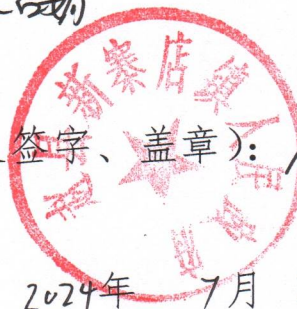 赵县新寨店镇人民政府
签字、盖章）：
2024年 7月